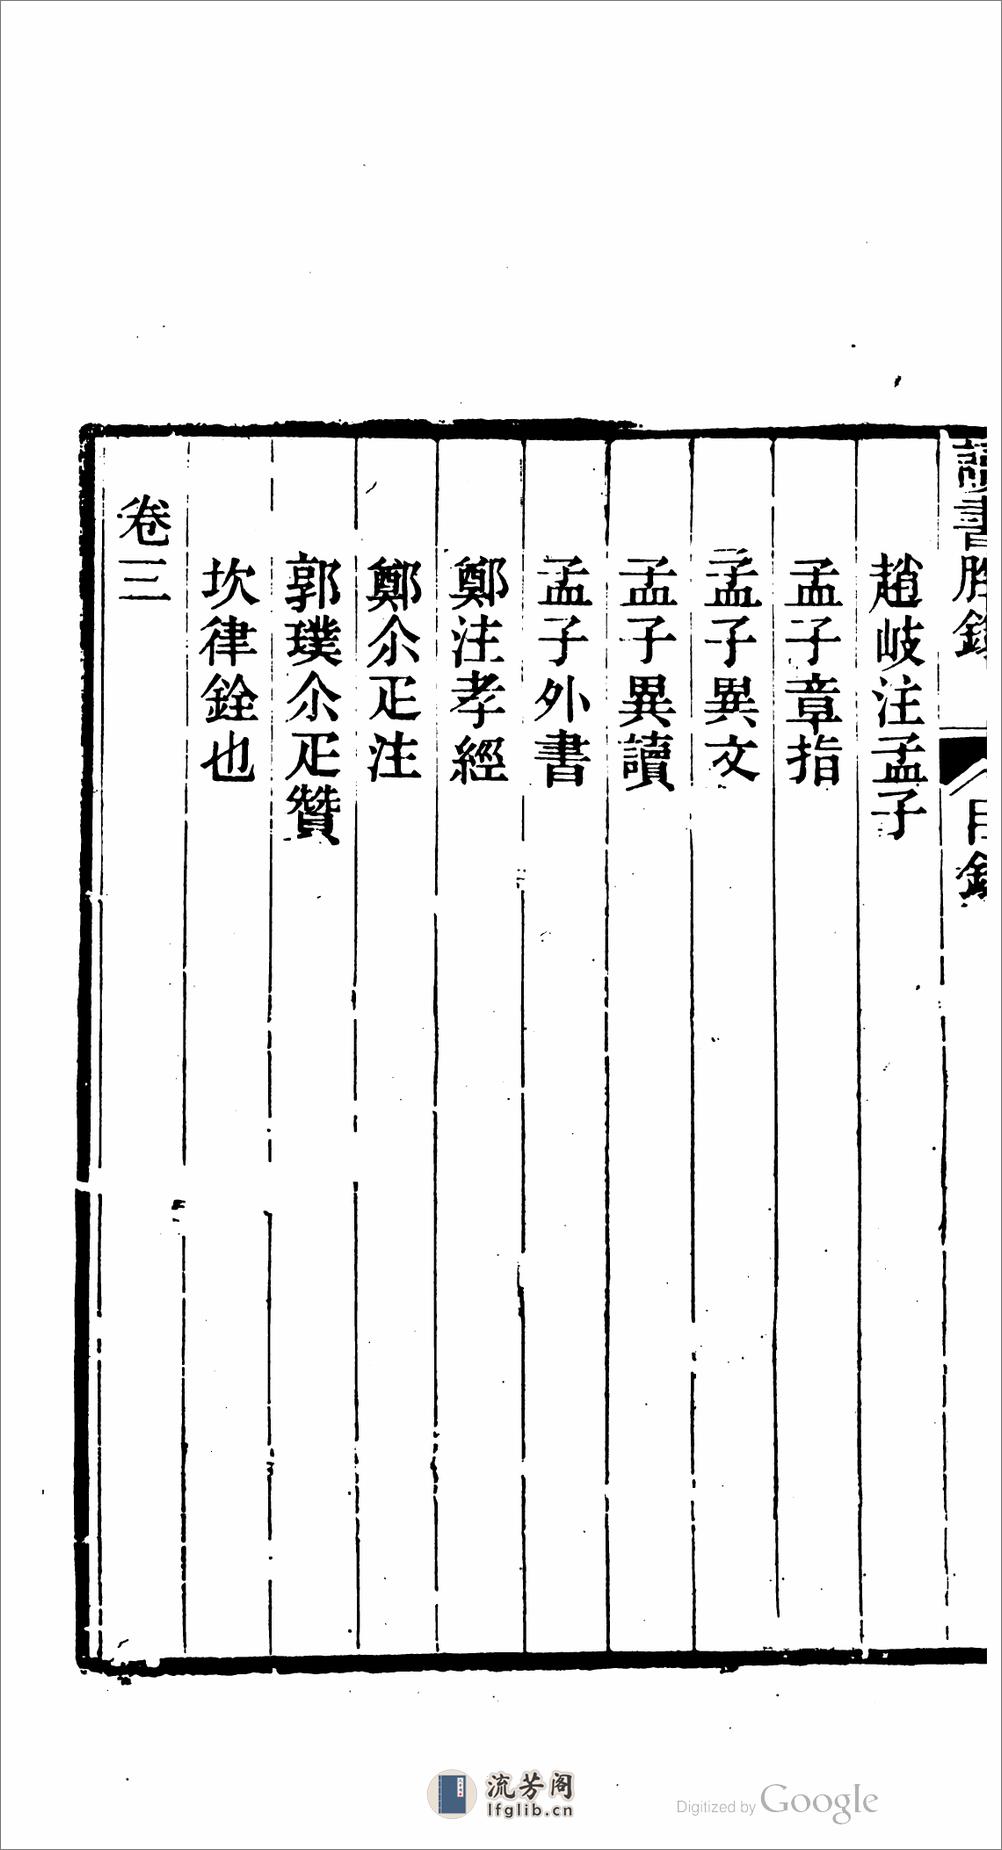 讀書脞錄
目錄
趙岐注孟子
孟子章指
孟子異文
孟子異讀
孟子外書
鄭注孝經
鄭尒疋注
郭璞尒疋贊
坎律銓也
卷三
流芳阁
lfglib.cn
Digitized by Google